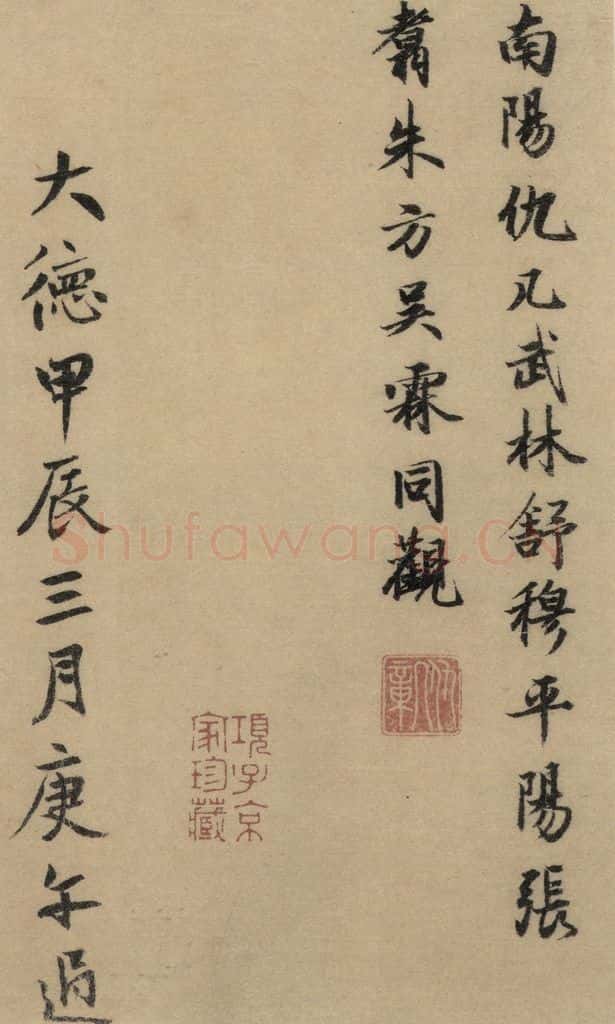 南陽仇几武林舒穆平陽張
翥朱方吳霖同觀
項子京
家珍藏
大德甲辰三月庚午過
shufawang.cn